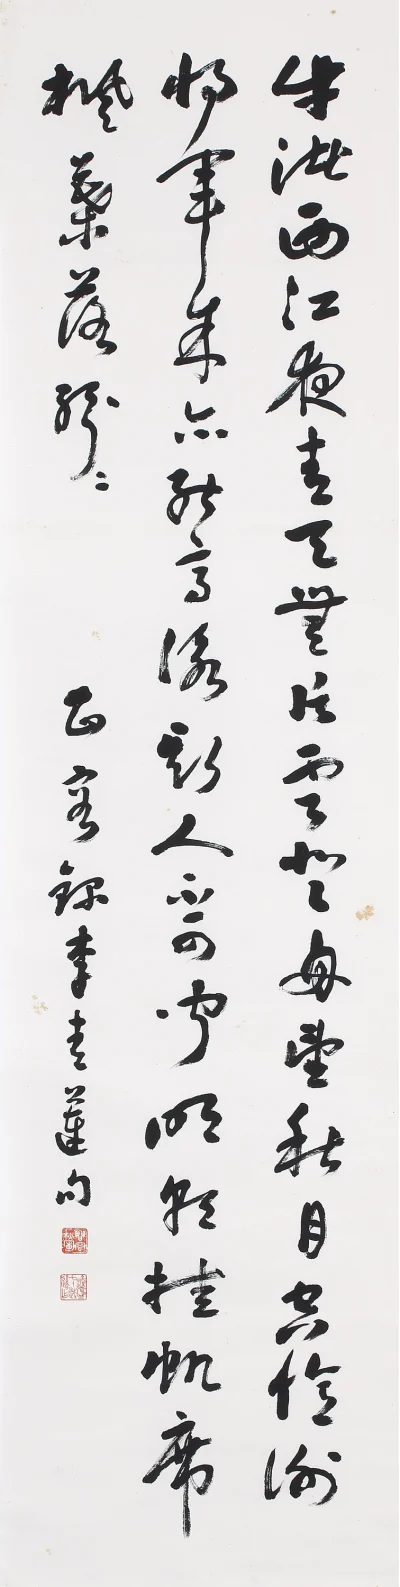 牛渚西江夜青天無片雲登舟望秋月空憶謝
將軍余亦能高詠斯人不可聞明朝挂帆席
楓葉落紛〻
錄李青蓮句